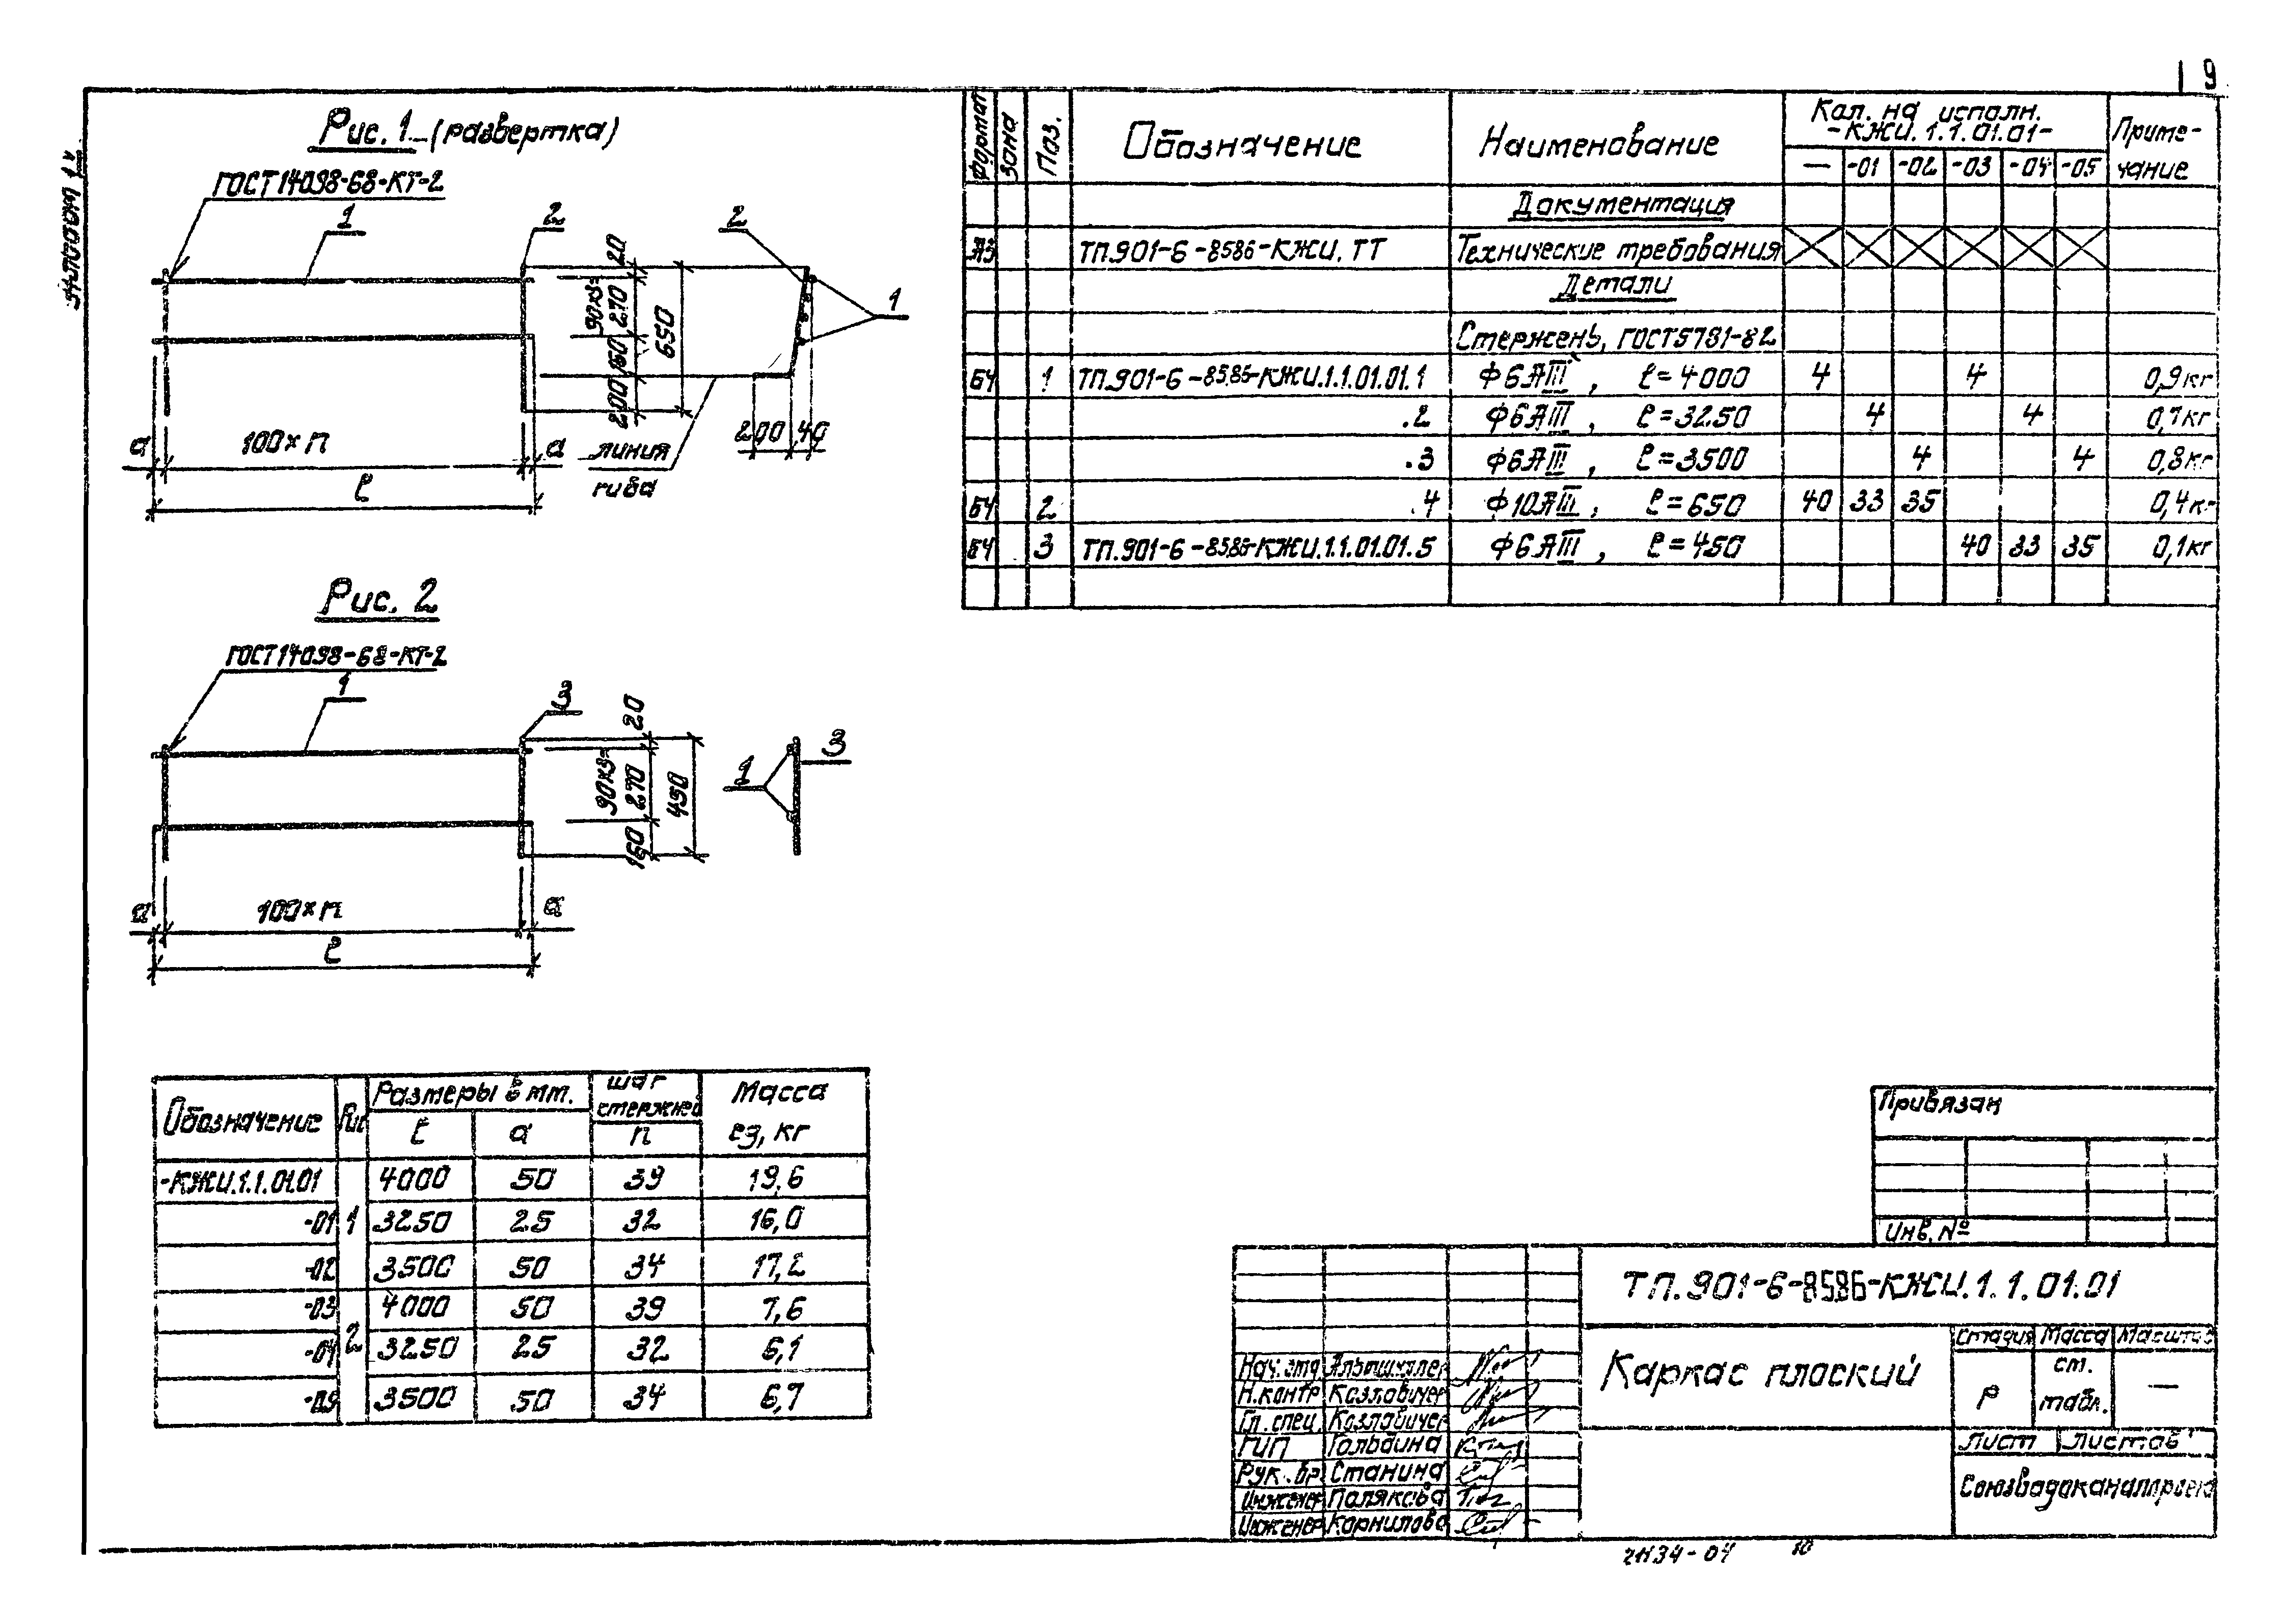 9
Альбом 1У
Рис. 1 (развертка)
ГОСТ 14098-68-КТ-2
1
2
2
1
20
90×3=
270
160
200
650
200
40
а
100×n
а
линия
гиба
ℓ
Рис. 2
ГОСТ 14098-68-КТ-2
1
3
20
90×3=
270
160
450
1
3
а
100×n
а
ℓ
Формат Зона Поз. Обозначение Наименование Кол. на исполн. -КЖИ.1.1.01.01- Приме-
— -01 -02 -03 -04 -05 чание
Документация
А3 ТП.901-6-8586-КЖИ.ТТ Технические требования
Детали
Стержень, ГОСТ5781-82
БЧ 1 ТП.901-6-8586-КЖИ.1.1.01.01.1 Ф6АIII, ℓ=4000 4 4 0,9кг
.2 Ф6АIII, ℓ=3250 4 4 0,7кг
.3 Ф6АIII, ℓ=3500 4 4 0,8кг
БЧ 2 .4 Ф10АIII, ℓ=650 40 33 35 0,4кг
БЧ 3 ТП.901-6-8586-КЖИ.1.1.01.01.5 Ф6АIII, ℓ=450 40 33 35 0,1кг
Обозначение Рис Размеры в мм. шаг стержней Масса
ℓ а n ед, кг
-КЖИ.1.1.01.01 4000 50 39 19,6
-01 1 3250 25 32 16,0
-02 3500 50 34 17,2
-03 4000 50 39 7,6
-04 2 3250 25 32 6,1
-05 3500 50 34 6,7
Привязан
Инв. №
ТП.901-6-8586-КЖИ.1.1.01.01
Каркас плоский
Стадия Масса Масштаб
Р см. табл. —
Лист Листов 1
Союзводоканалпроект
Нач. отд
Н.контр Козлович
Гл. спец. Козлович
ГИП Гольдина
Рук. бр. Станина
Инженер Полякова
Инженер Корнилова
21134-04 10